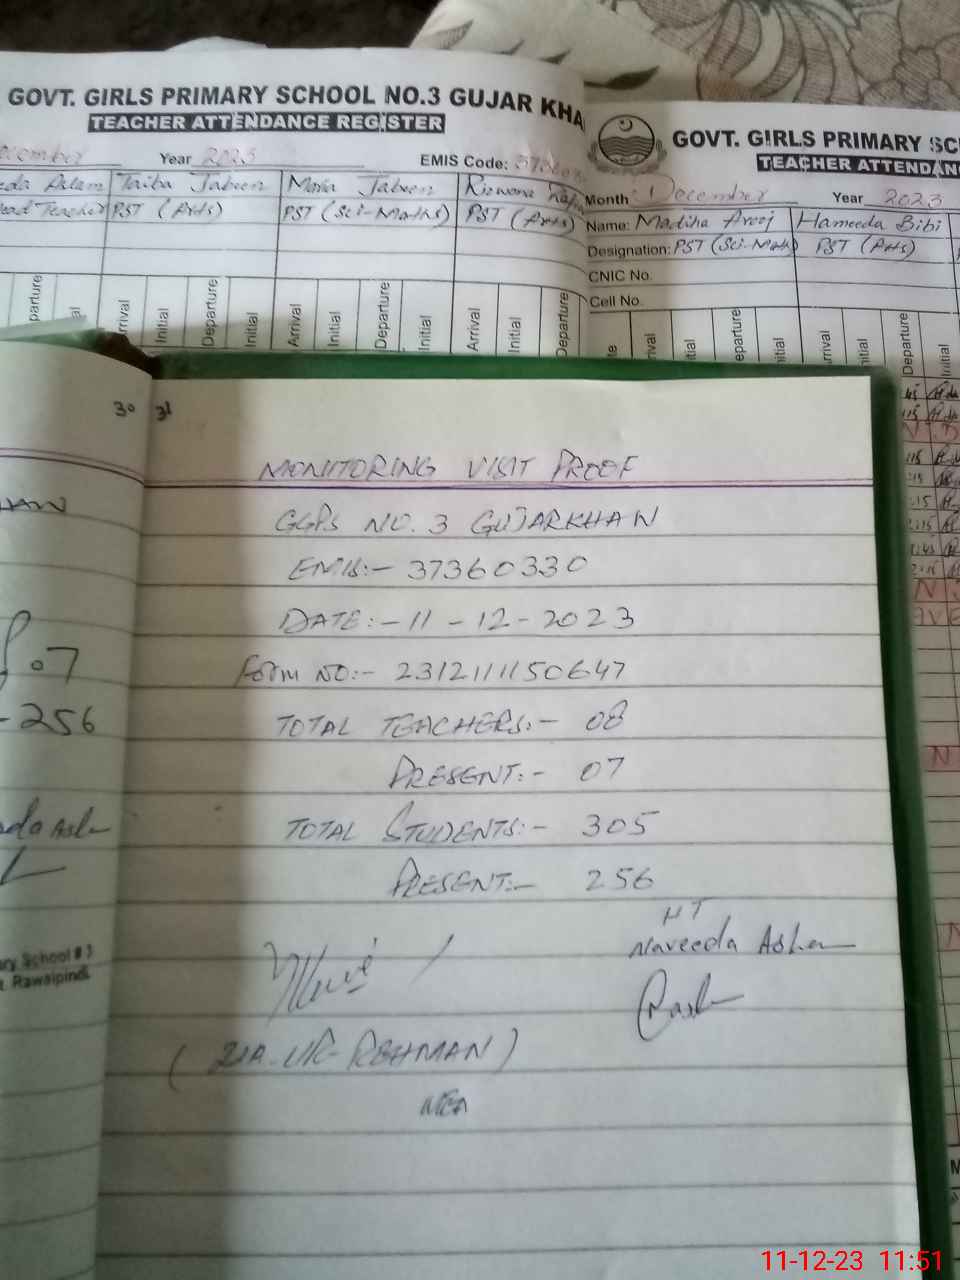 GOVT. GIRLS PRIMARY SCHOOL NO.3 GUJAR KHA
TEACHER ATTENDANCE REGISTER
ecember Year 2023 EMIS Code:
eda Aslam Taiba Jabeen Maria Jabeen Rizwana
ead Teacher PST (Arts) PST (Sci-Maths) PST (Arts)
parture Arrival Initial Departure Initial Arrival Initial Departure Initial Arrival Initial Departure
GOVT. GIRLS PRIMARY SC
TEACHER ATTENDAN
Month December Year 2023
Name: Madiha Areej Hameeda Bibi
Designation: PST (Sci-Math) PST (Arts)
CNIC No.
Cell No.
te rival itial eparture itial Arrival Initial Departure Initial
30
HAW
07
-256
eda Asl
ary School # 3
Rawalpindi
31
MONITORING VISIT PROOF
GGPS NO. 3 GUJARKHAN
EMIS:- 37360330
DATE:- 11 - 12 - 2023
Form NO:- 2312111150647
TOTAL TEACHERS:- 08
PRESENT:- 07
TOTAL STUDENTS:- 305
PRESENT:- 256
HT
Naveeda Aslam
(ZIA-UR-REHMAN)
MEA
11-12-23 11:51